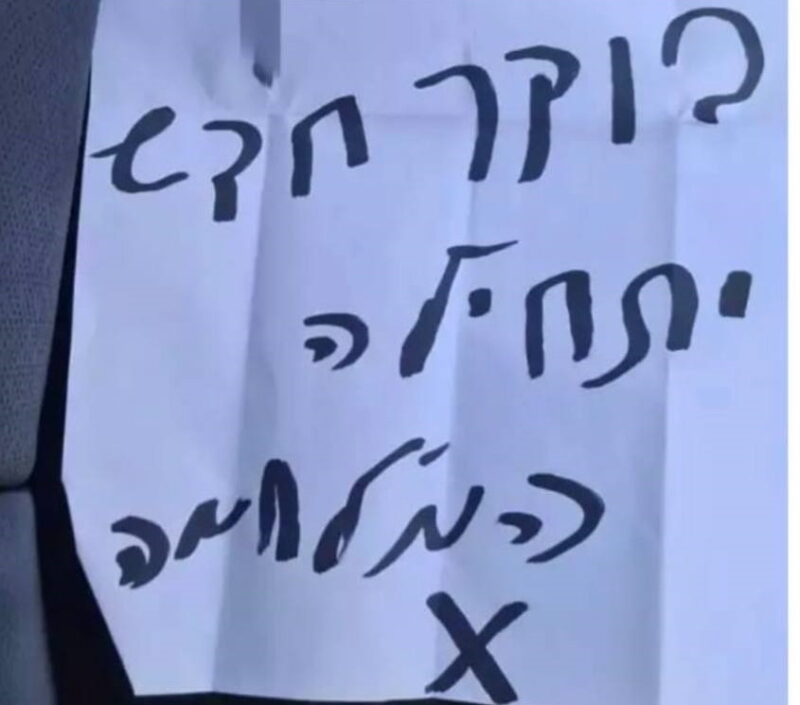 בוקר חדש
יתחילה
המלחמה
X